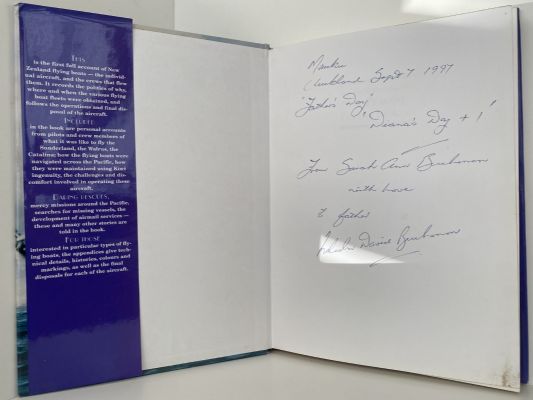 THIS
is the first full account of New
Zealand flying boats — the individ-
ual aircraft, and the crews that flew
them. It records the politics of why,
where and when the various flying
boat fleets were obtained, and
follows the operations and final dis-
posal of the aircraft.
INCLUDED
in the book are personal accounts
from pilots and crew members of
what it was like to fly the
Sunderland, the Walrus, the
Catalina; how the flying boats were
navigated across the Pacific, how
they were maintained using Kiwi
ingenuity, the challenges and dis-
comfort involved in operating these
aircraft.
DARING RESCUES,
mercy missions around the Pacific,
searches for missing vessels, the
development of airmail services —
these and many other stories are
told in the book.
FOR THOSE
interested in particular types of fly-
ing boats, the appendices give tech-
nical details, histories, colours and
markings, as well as the final
disposals for each of the aircraft.
Auckland Sept 7 1997
"Father's Day"
"Deana's Day + 1"
From Sarah Ann Buchanan
with love
& father
Buchanan